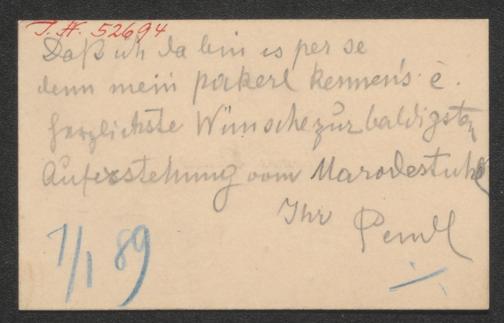 J. N. 52694
Daß ich da bin is per se
denn mein pakerl kennen's é.
herzlichste Wünsche zur baldigsten
Auferstehung vom Marodestuhl
Ihr
1/1 89